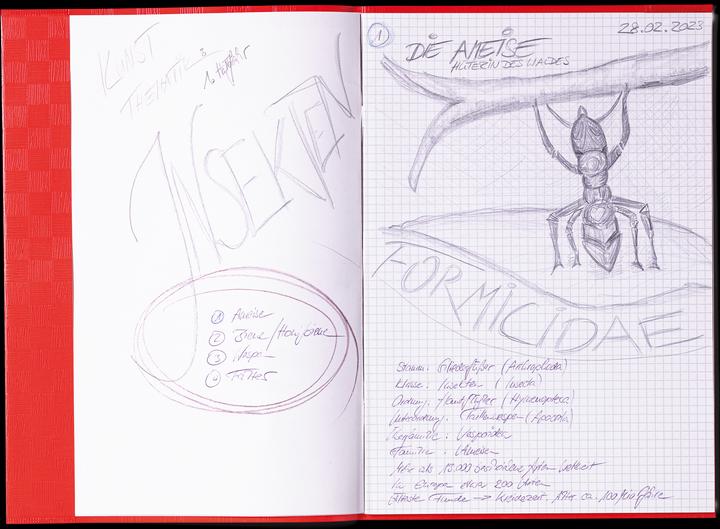 KUNST
THEMATIK:
INSEKTEN
① Ameise
② Biene/Honigbiene
③ Wespe
④ Falter
①
28.02.2023
DIE AMEISE
HÜTERIN DES WALDES
FORMICIDAE
Stamm: Gliederfüßer (Arthropoda)
Klasse: Insekten (Insecta)
Ordnung: Hautflügler (Hymenoptera)
Unterordnung: Taillenwespen (Apocrita)
Vespoidea
Familie: Ameisen
Mehr als 13.000 Arten weltweit
In Europa etwa 200 Arten
Älteste Funde → Kreidezeit, Alter ca. 100 Mio Jahre